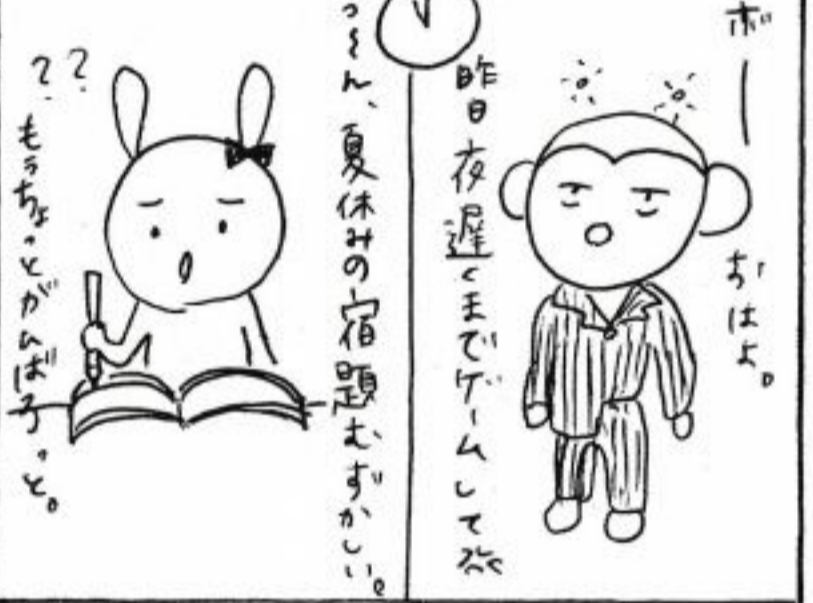 ボー
おはよ。
昨日夜遅くまでゲームして
う〜ん、夏休みの宿題むずかしい。
??
もうちょっとがんばろっと。